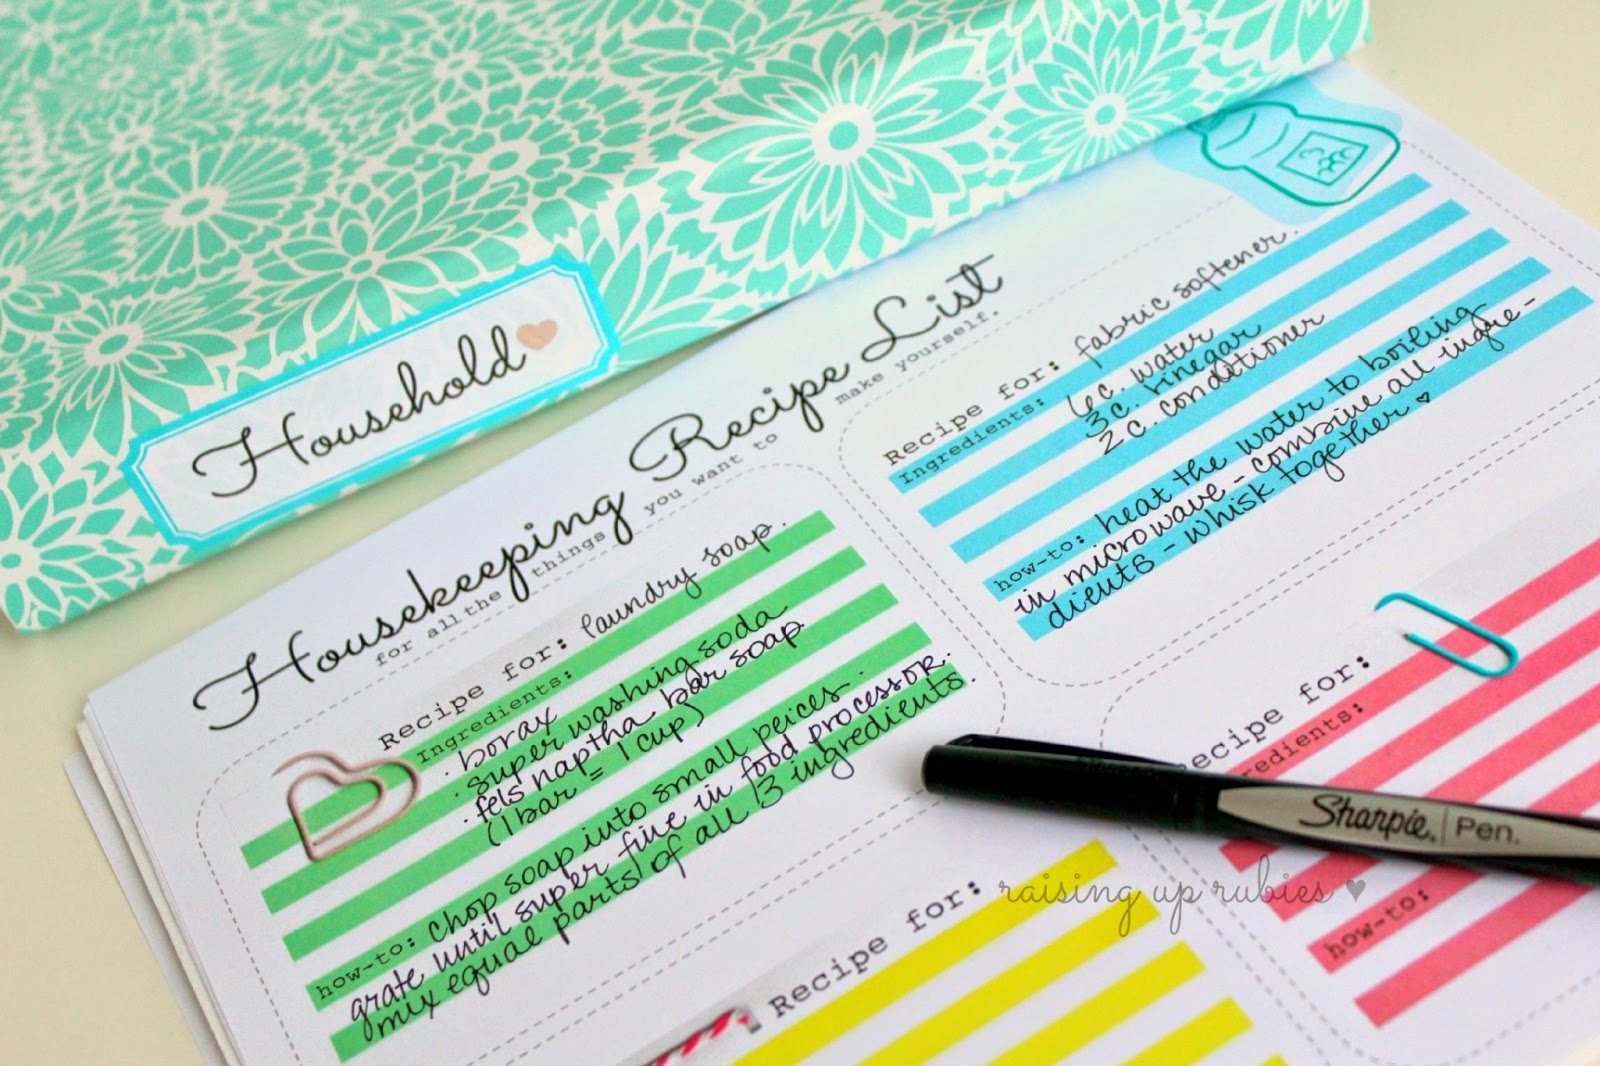 Household
Housekeeping Recipe List
for all the things you want to make yourself.
Recipe for: laundry soap.
Ingredients:
· borax
· super washing soda
· fels naptha bar soap
(1 bar = 1 cup)
how-to: chop soap into small peices.
grate until super fine in food processor.
mix equal parts of all 3 ingredients.
Recipe for: fabric softener.
Ingredients: 6 c. water
3 c. vinegar
2 c. conditioner
how-to: heat the water to boiling
in microwave - combine all ingre-
dients - whisk together ♥
Recipe for:
Ingredients:
how-to:
Recipe for:
Sharpie. Pen.
raising up rubies ♥